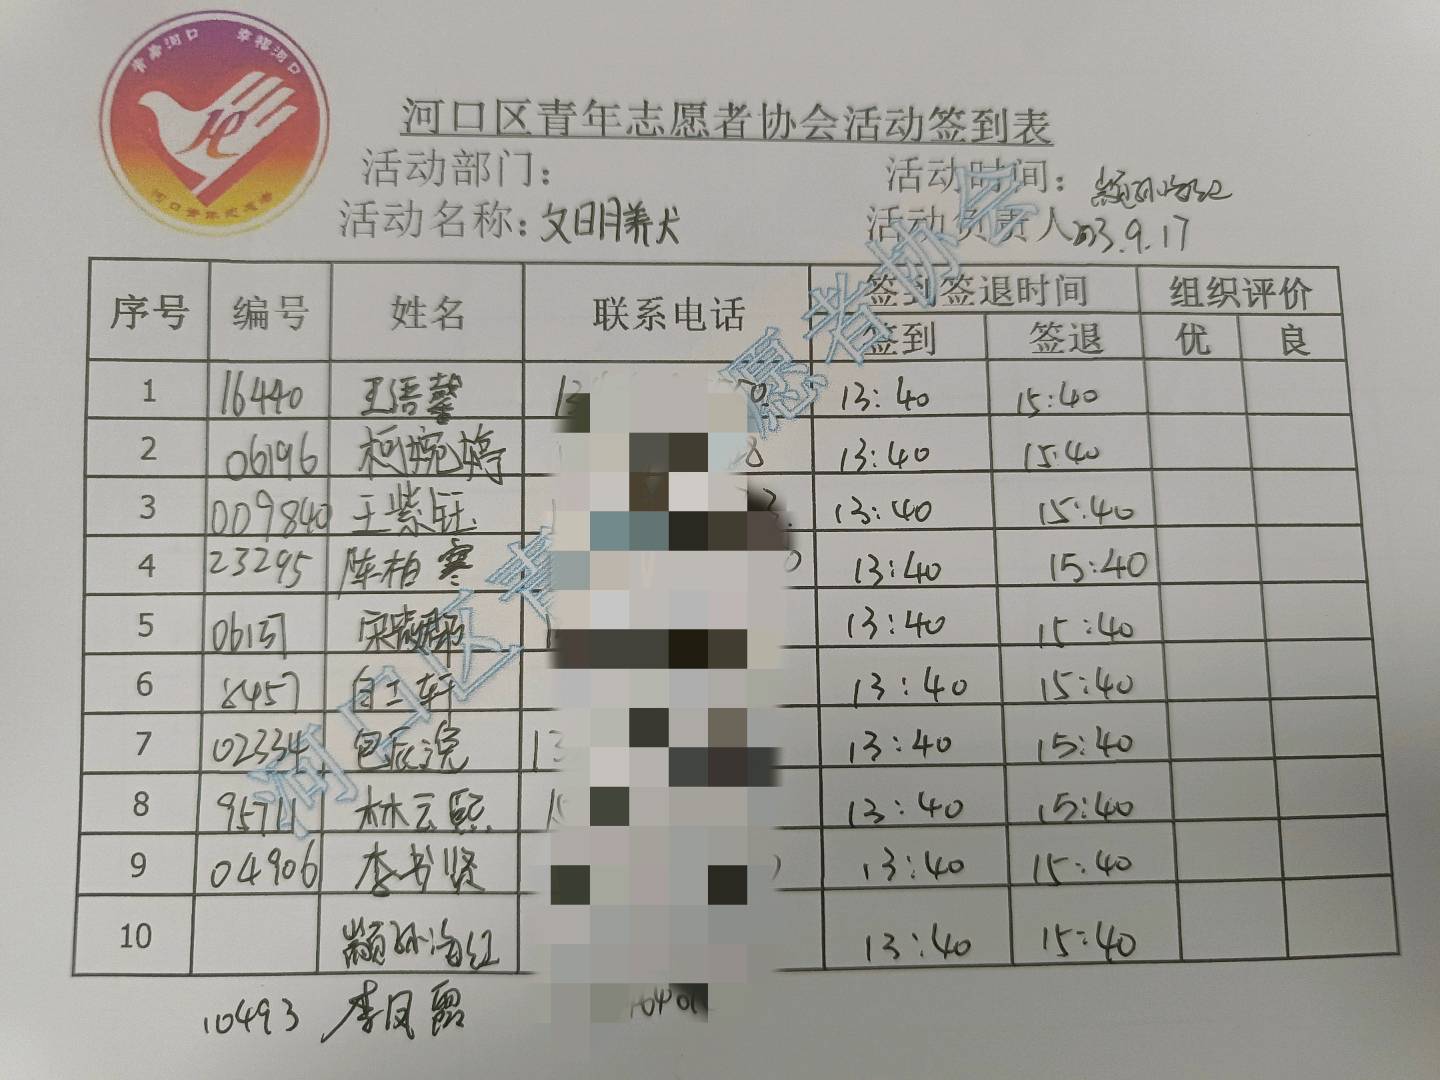 青春河口 幸福河口
河口青年志愿者
河口区青年志愿者协会活动签到表
活动部门： 活动时间：
活动名称：文明养犬 活动负责人 23.9.17
序号 编号 姓名 联系电话 签到签退时间 组织评价
签到 签退 优 良
1 16440 王语馨 13 13:40 15:40
2 06196 柯婉婷 8 13:40 15:40
3 009840 王紫钰 13:40 15:40
4 23295 陈柏寒 0 13:40 15:40
5 宋 13:40 15:40
6 8457 13:40 15:40
7 02334 包辰浣 13 13:40 15:40
8 95711 林云熙 13:40 15:40
9 04906 李书贤 13:40 15:40
10 海红 13:40 15:40
10493 李凤
河口区青年志愿者协会